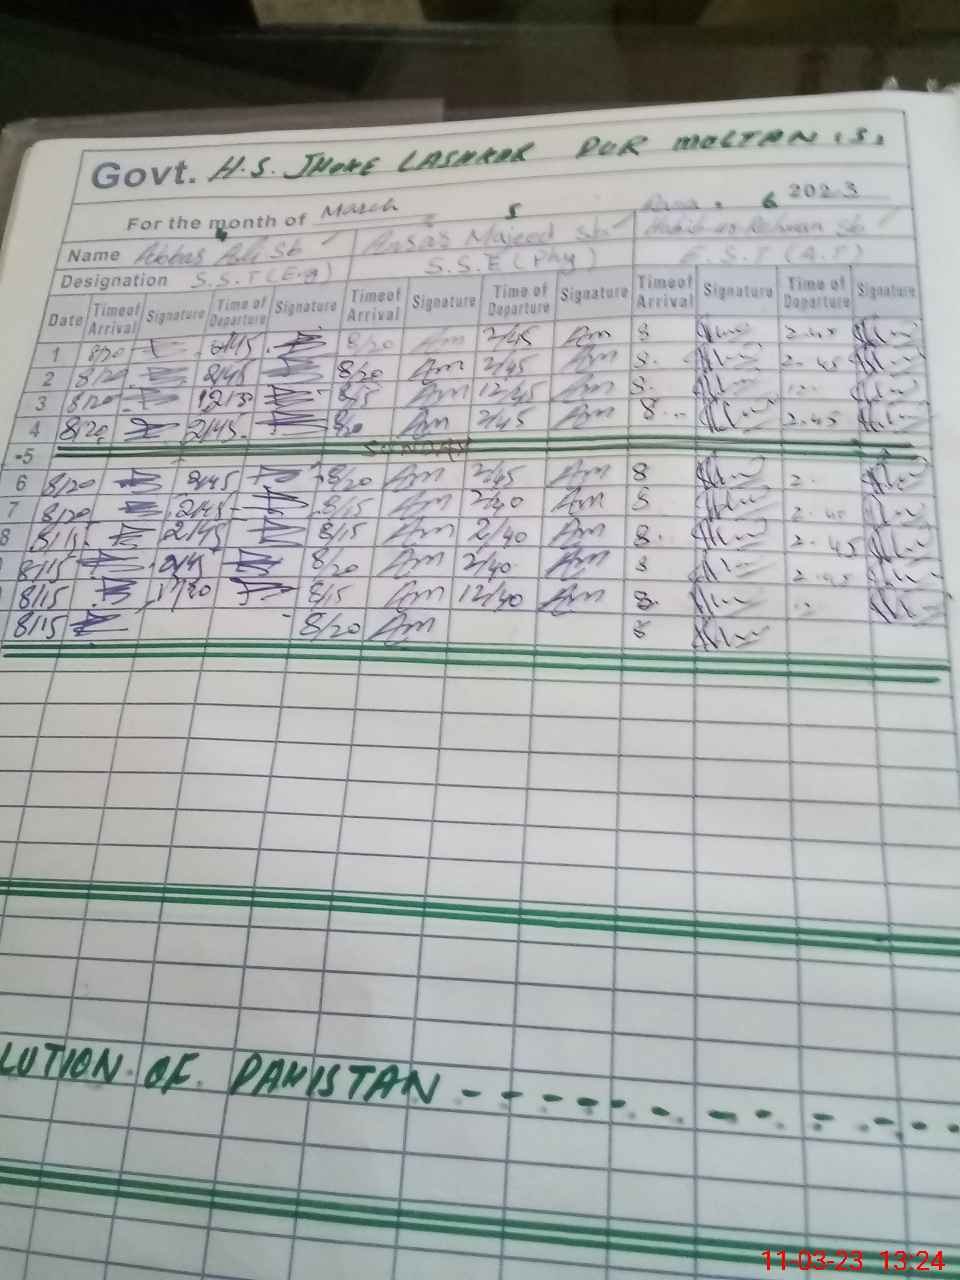 Govt. H.S. JHOKE LASHKAR PUR MULTAN.(S)
For the month of March 2023
4 5 6
Name Abbas Ali Sb Majeed Sb Habib ur Rehman Sb
Designation S.S.T(Eng) S.S.E(Phy) E.S.T(A.T)
Date Time of Arrival Signature Time of Departure Signature Time of Arrival Signature Time of Departure Signature Time of Arrival Signature Time of Departure Signature
1 8/20 2/45 8/20 Am 2/45 Am 8 2.45
2 8/20 2/45 8/20 Am 2/45 Am 8. 2.45
3 8/20 8/15 Am 12/45 Am 8. 12.
4 8/20 2/45. 8/20 Am 2/45 Am 8 2.45
5 SUNDAY
6 8/20 2/45 8/20 Am 2/45 Am 8 2.
7 8/20 2/45 8/15 Am 2/40 Am 8 2.40
8 8/15 2/45 8/15 Am 2/40 Am 8. 2.45
8/15 2/45 8/20 Am 2/40 Am 8 2.45
8/15 8/15 Am 12/40 Am 8.
8/15 8/20 Am 8
LUTION OF PAKISTAN
11-03-23 13:24